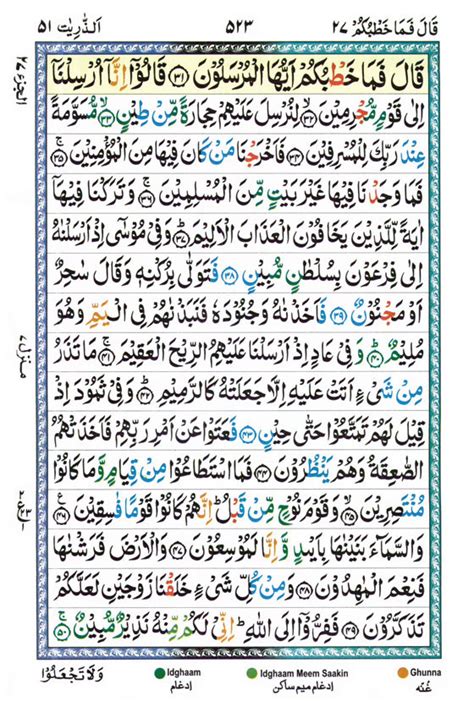 قَالَ فَمَا خَطْبُكُمْ ٢٧
٥٢٣
اَلذّٰرِيٰت ٥١
قَالَ فَمَا خَطْبُكُمْ اَيُّهَا الْمُرْسَلُوْنَ ﴿٣١﴾ قَالُوْۤا اِنَّاۤ اُرْسِلْنَاۤ
اِلٰى قَوْمٍ مُّجْرِمِيْنَ ﴿٣٢﴾ لِنُرْسِلَ عَلَيْهِمْ حِجَارَةً مِّنْ طِيْنٍ ﴿٣٣﴾ مُّسَوَّمَةً
عِنْدَ رَبِّكَ لِلْمُسْرِفِيْنَ ﴿٣٤﴾ فَاَخْرَجْنَا مَنْ كَانَ فِيْهَا مِنَ الْمُؤْمِنِيْنَ ﴿٣٥﴾
فَمَا وَجَدْنَا فِيْهَا غَيْرَ بَيْتٍ مِّنَ الْمُسْلِمِيْنَ ﴿٣٦﴾ وَتَرَكْنَا فِيْهَاۤ
اٰيَةً لِّلَّذِيْنَ يَخَافُوْنَ الْعَذَابَ الْاَلِيْمَ ﴿٣٧﴾ وَفِيْ مُوْسٰۤى اِذْ اَرْسَلْنٰهُ
اِلٰى فِرْعَوْنَ بِسُلْطٰنٍ مُّبِيْنٍ ﴿٣٨﴾ فَتَوَلّٰى بِرُكْنِهٖ وَقَالَ سٰحِرٌ
اَوْ مَجْنُوْنٌ ﴿٣٩﴾ فَاَخَذْنٰهُ وَجُنُوْدَهٗ فَنَبَذْنٰهُمْ فِي الْيَمِّ وَهُوَ
مُلِيْمٌ ﴿٤٠﴾ وَفِيْ عَادٍ اِذْ اَرْسَلْنَا عَلَيْهِمُ الرِّيْحَ الْعَقِيْمَ ﴿٤١﴾ مَا تَذَرُ
مِنْ شَيْءٍ اَتَتْ عَلَيْهِ اِلَّا جَعَلَتْهُ كَالرَّمِيْمِ ﴿٤٢﴾ وَفِيْ ثَمُوْدَ اِذْ
قِيْلَ لَهُمْ تَمَتَّعُوْا حَتّٰى حِيْنٍ ﴿٤٣﴾ فَعَتَوْا عَنْ اَمْرِ رَبِّهِمْ فَاَخَذَتْهُمُ
الصّٰعِقَةُ وَهُمْ يَنْظُرُوْنَ ﴿٤٤﴾ فَمَا اسْتَطَاعُوْا مِنْ قِيَامٍ وَّمَا كَانُوْا
مُنْتَصِرِيْنَ ﴿٤٥﴾ وَقَوْمَ نُوْحٍ مِّنْ قَبْلُ ؕ اِنَّهُمْ كَانُوْا قَوْمًا فٰسِقِيْنَ ﴿٤٦﴾
وَالسَّمَآءَ بَنَيْنٰهَا بِاَيْىدٍ وَّاِنَّا لَمُوْسِعُوْنَ ﴿٤٧﴾ وَالْاَرْضَ فَرَشْنٰهَا
فَنِعْمَ الْمٰهِدُوْنَ ﴿٤٨﴾ وَمِنْ كُلِّ شَيْءٍ خَلَقْنَا زَوْجَيْنِ لَعَلَّكُمْ
تَذَكَّرُوْنَ ﴿٤٩﴾ فَفِرُّوْۤا اِلَى اللّٰهِ ؕ اِنِّيْ لَكُمْ مِّنْهُ نَذِيْرٌ مُّبِيْنٌ ﴿٥٠﴾
وَلَا تَجْعَلُوْا
Idghaam
ادغام
Idghaam Meem Saakin
ادغام میم ساکن
Ghunna
غنہ
الجزء ٢٧
منزل ٧